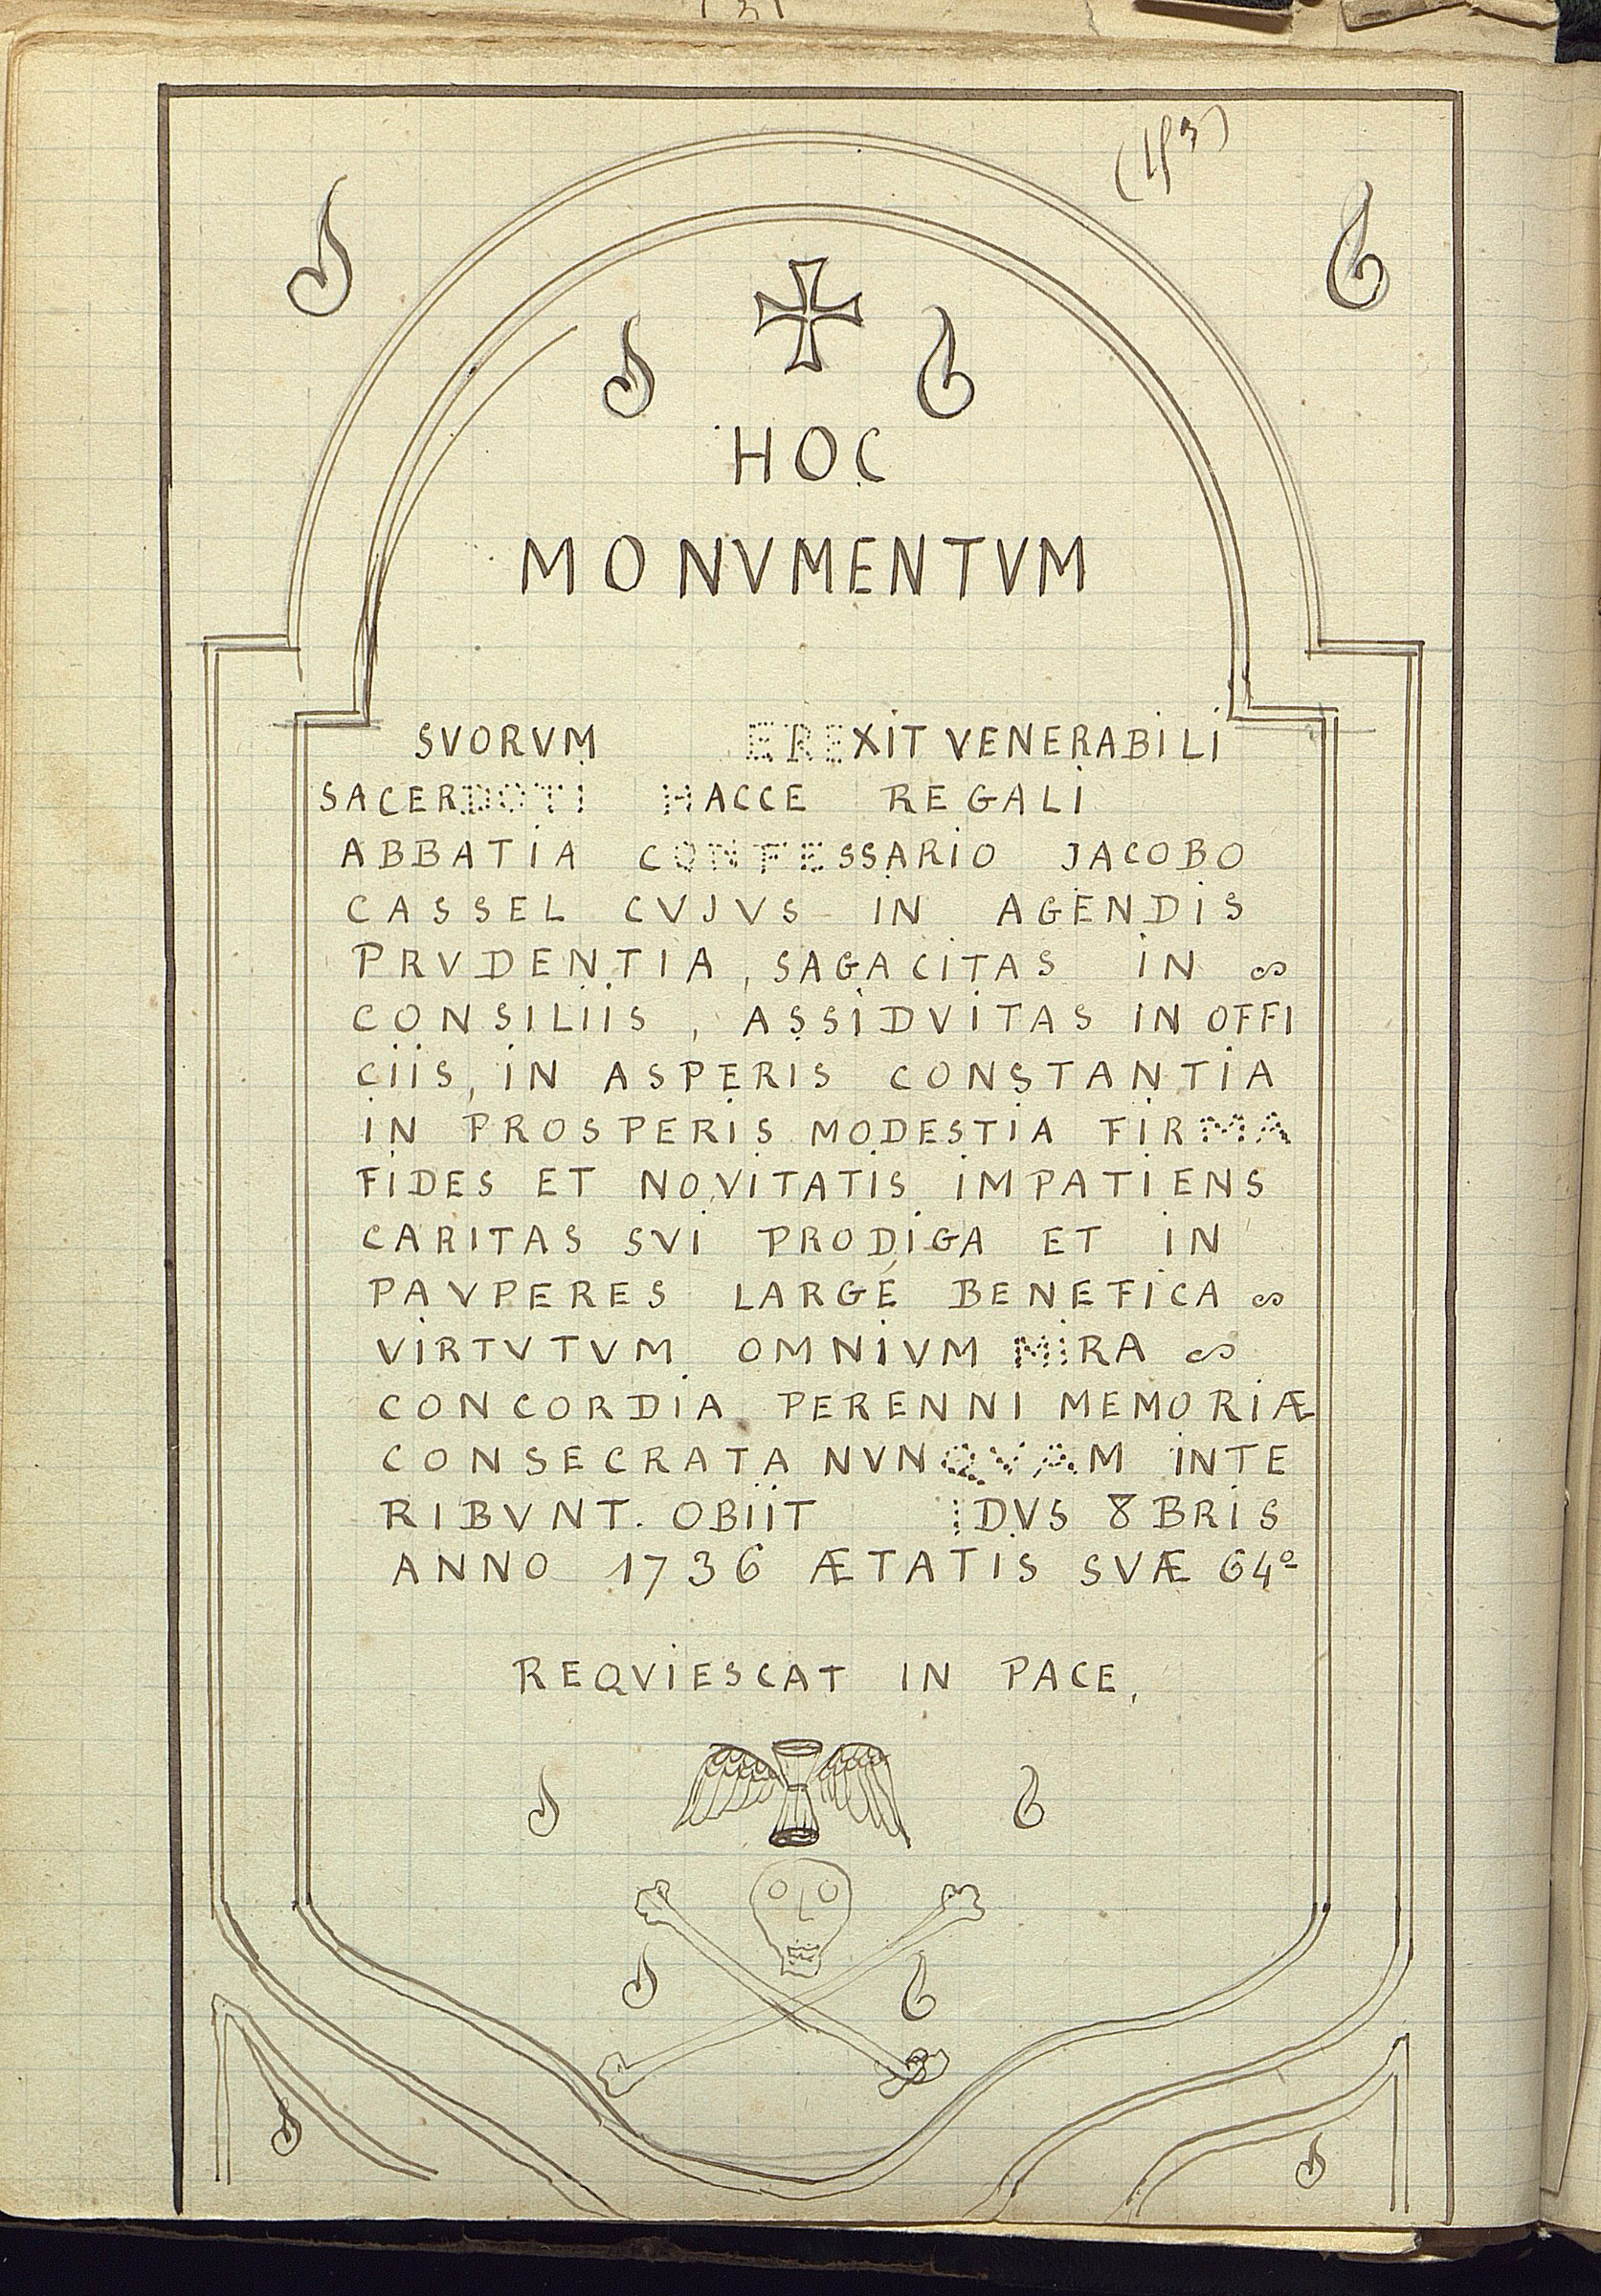 HOC
MONVMENTVM
SVORVM EREXIT VENERABILI
SACERDOTI HACCE REGALI
ABBATIA CONFESSARIO JACOBO
CASSEL CVJVS IN AGENDIS
PRVDENTIA, SAGACITAS IN ∞
CONSILIIS, ASSIDVITAS IN OFFI
CIIS, IN ASPERIS CONSTANTIA
IN PROSPERIS MODESTIA FIRMA
FIDES ET NOVITATIS IMPATIENS
CARITAS SVI PRODIGA ET IN
PAVPERES LARGÉ BENEFICA ∞
VIRTVTVM OMNIVM MIRA ∞
CONCORDIA PERENNI MEMORIÆ
CONSECRATA NVNQVAM INTE
RIBVNT. OBIIT IDVS 8BRIS
ANNO 1736 ÆTATIS SVÆ 64º
REQVIESCAT IN PACE,